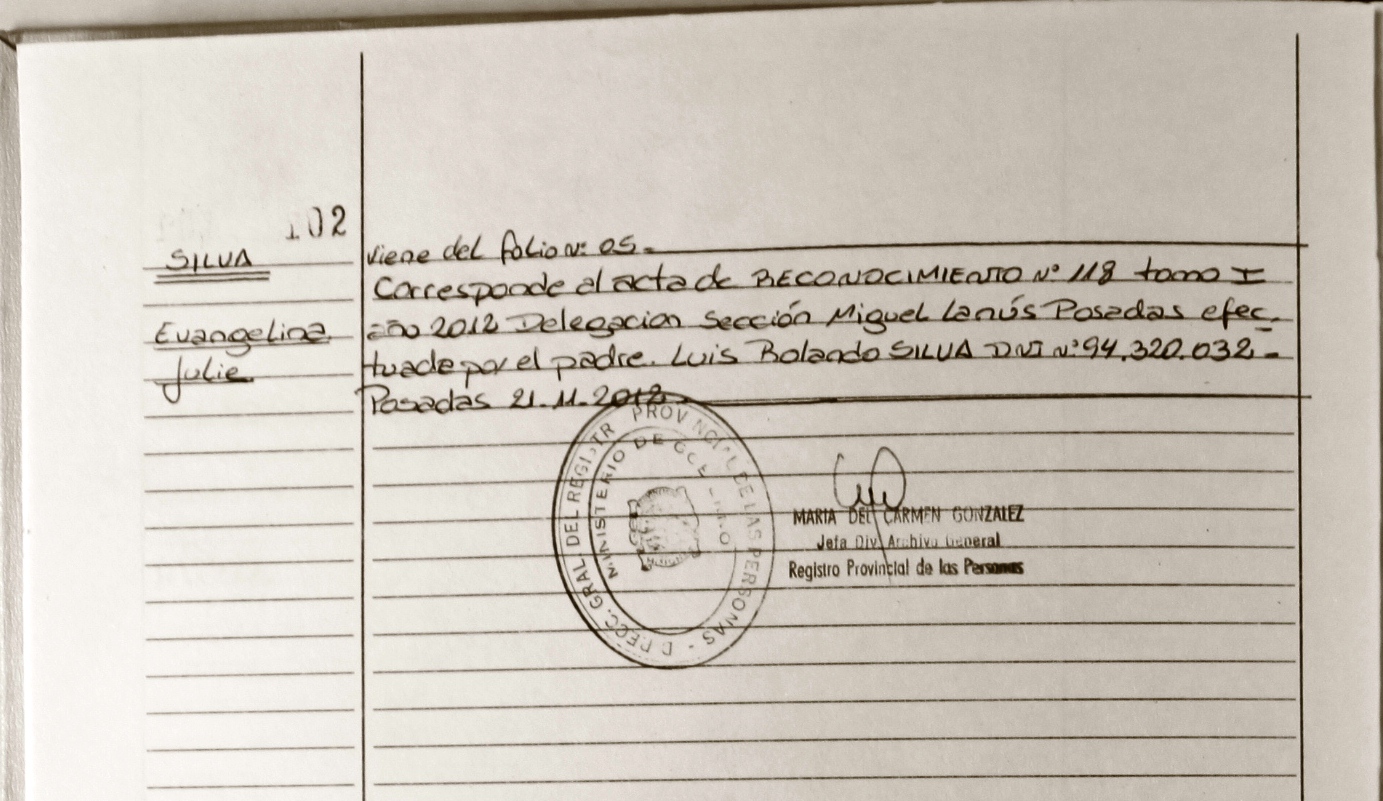 102
SILVA
Evangelina
Julie
viene del folio Nº 05.-
Corresponde al acta de RECONOCIMIENTO Nº 118 tomo I
año 2012 Delegacion Sección Miguel Lanús Posadas efec-
tuada por el padre. Luis Rolando SILVA DNI Nº 94.320.032.-
Posadas 21.11.2012
DIRECC. GRAL DEL REGISTR PROVINCIAL DE LAS PERSONAS -
MINISTERIO DE GOBIERNO
MARIA DEL CARMEN GONZALEZ
Jefa Div. Archivo General
Registro Provincial de las Personas